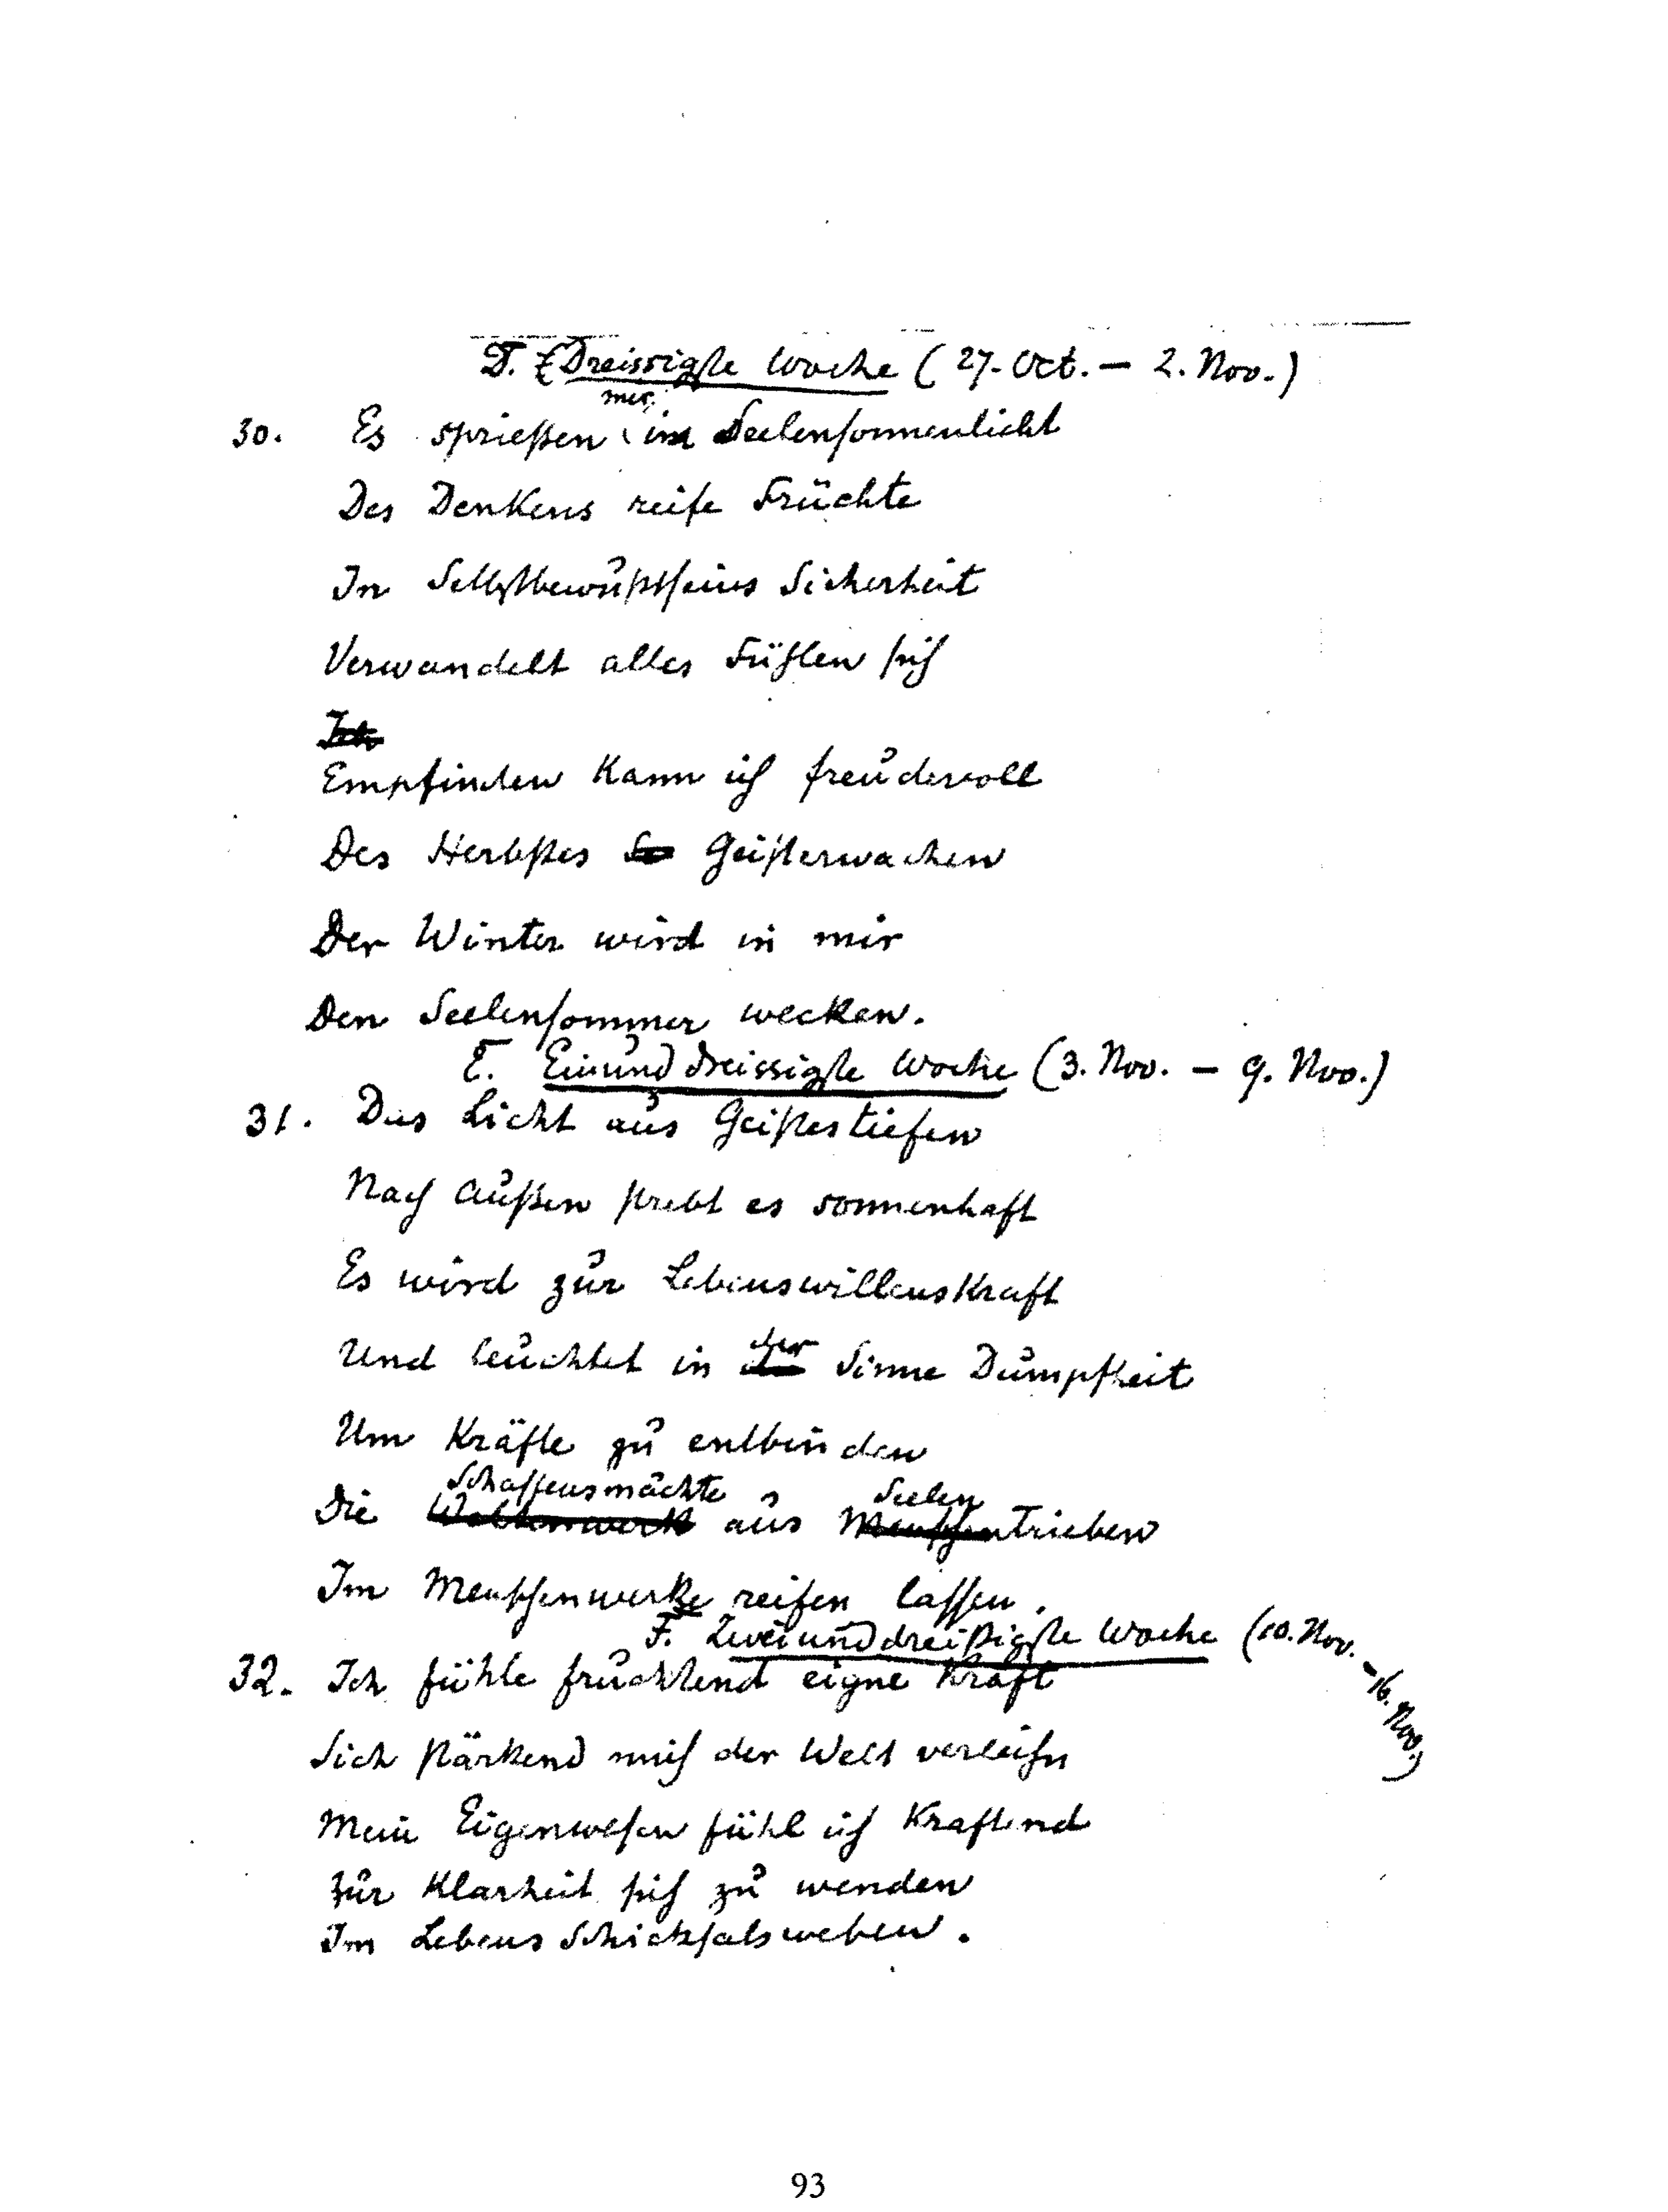 D. Dreissigste Woche (27. Oct. – 2. Nov.)
mir
30. Es sprießen im Seelensonnenlicht
Des Denkens reife Früchte
In Selbstbewußtseins Sicherheit
Verwandelt alles Fühlen sich
Ich
Empfinden kann ich freudevoll
Des Herbstes Geisterwachen
Der Winter wird in mir
Den Seelensommer wecken.
E. Einunddreissigste Woche (3. Nov. – 9. Nov.)
31. Das Licht aus Geistestiefen
Nach außen strebt es sonnenhaft
Es wird zur Lebenswillenskraft
der
Und leuchtet in Sinne Dumpfheit
Um Kräfte zu entbinden
Schaffensmächte Seelen
Die aus Menschentrieben
Im Menschenwerke reifen lassen.
F. Zweiunddreißigste Woche (10. Nov. – 16. Nov.)
32. Ich fühle fruchtend eigne Kraft
Sich stärkend mich der Welt verleihn
Mein Eigenwesen fühl ich kraftend
Zur Klarheit sich zu wenden
Im Lebensschicksalsweben.
93